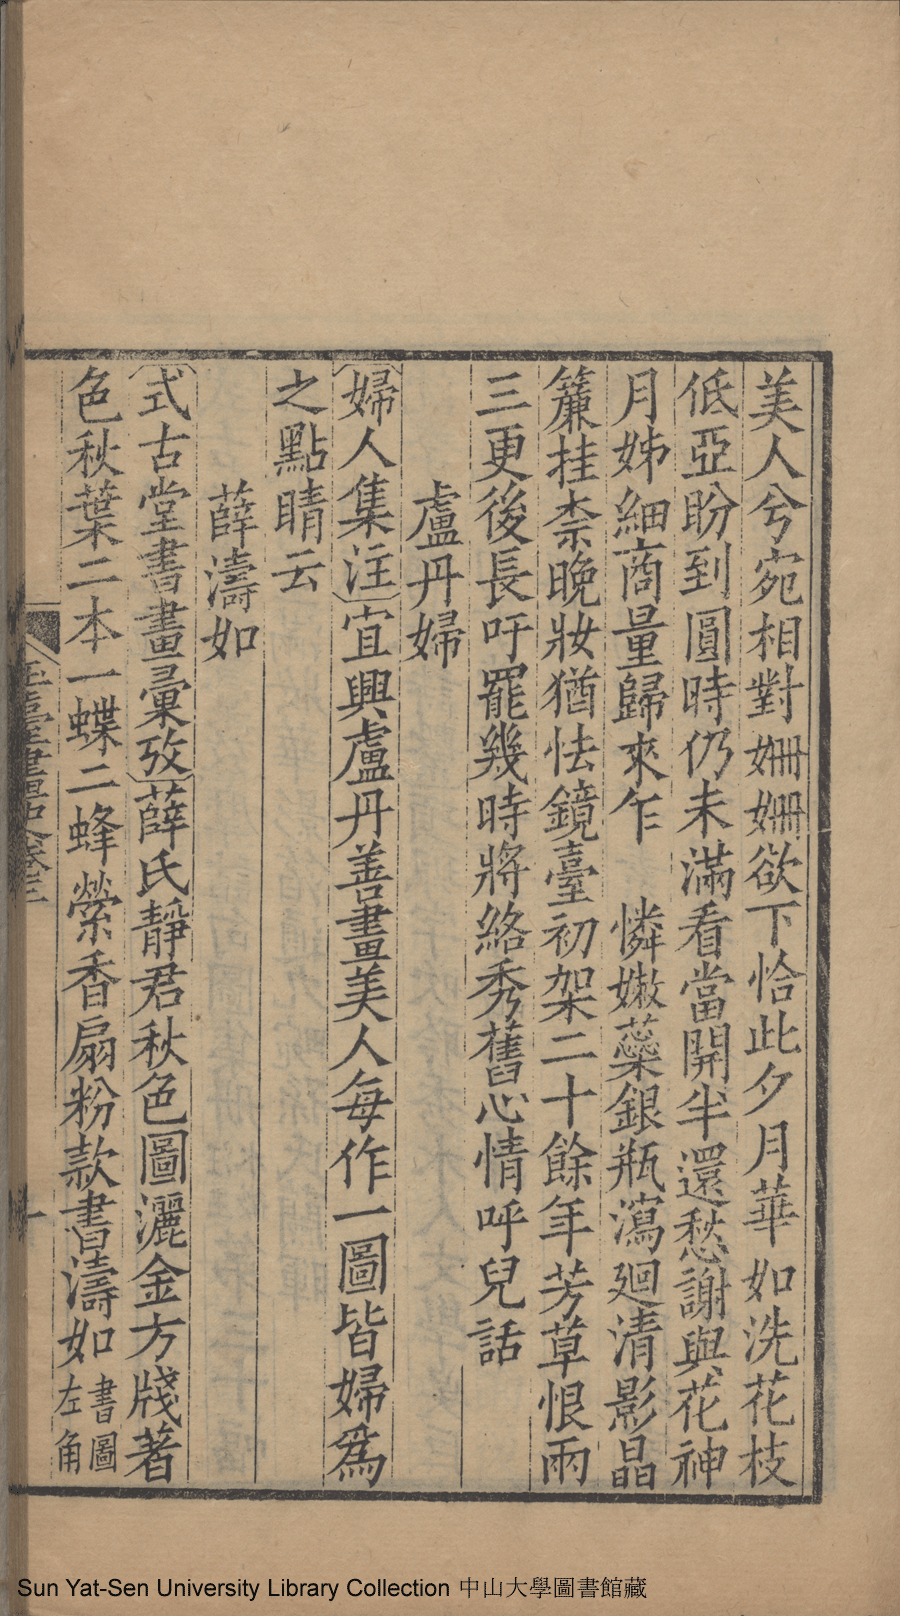 美人兮宛相對姍姍欲下恰此夕月華如洗花枝
低亞盼到圓時仍未滿看當開半還愁謝與花神
月姊細商量歸來乍　憐嫩蘂銀瓶瀉廻清影晶
簾挂柰晚妝猶怯鏡臺初架二十餘年芳草恨兩
三更後長吁罷幾時將絡秀舊心情呼兒話
盧丹婦
〔婦人集注〕宜興盧丹善畫美人每作一圖皆婦爲
之點睛云
薛濤如
〔式古堂書畫彙攷〕薛氏靜君秋色圖灑金方牋著
色秋葉二本一蝶二蜂縈香扇粉款書濤如書圖左角
玉臺書畫史卷三
Sun Yat-Sen University Library Collection 中山大學圖書館藏